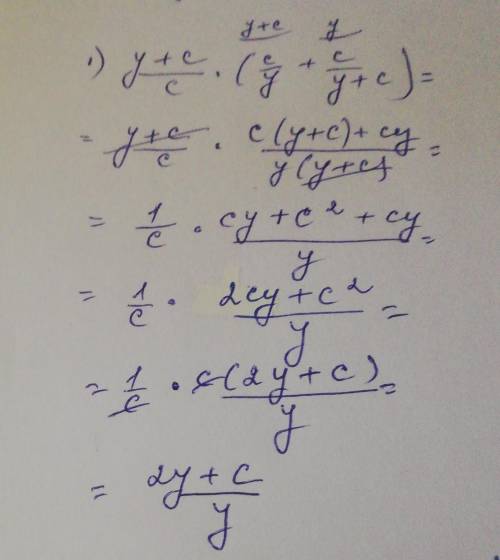 y+c y
1) y+c/c · (c/y + c/y+c) =
= y+c/c · c(y+c)+cy/y(y+c) =
= 1/c · cy+c²+cy/y =
= 1/c · 2cy+c²/y =
= 1/c · c(2y+c)/y =
= 2y+c/y